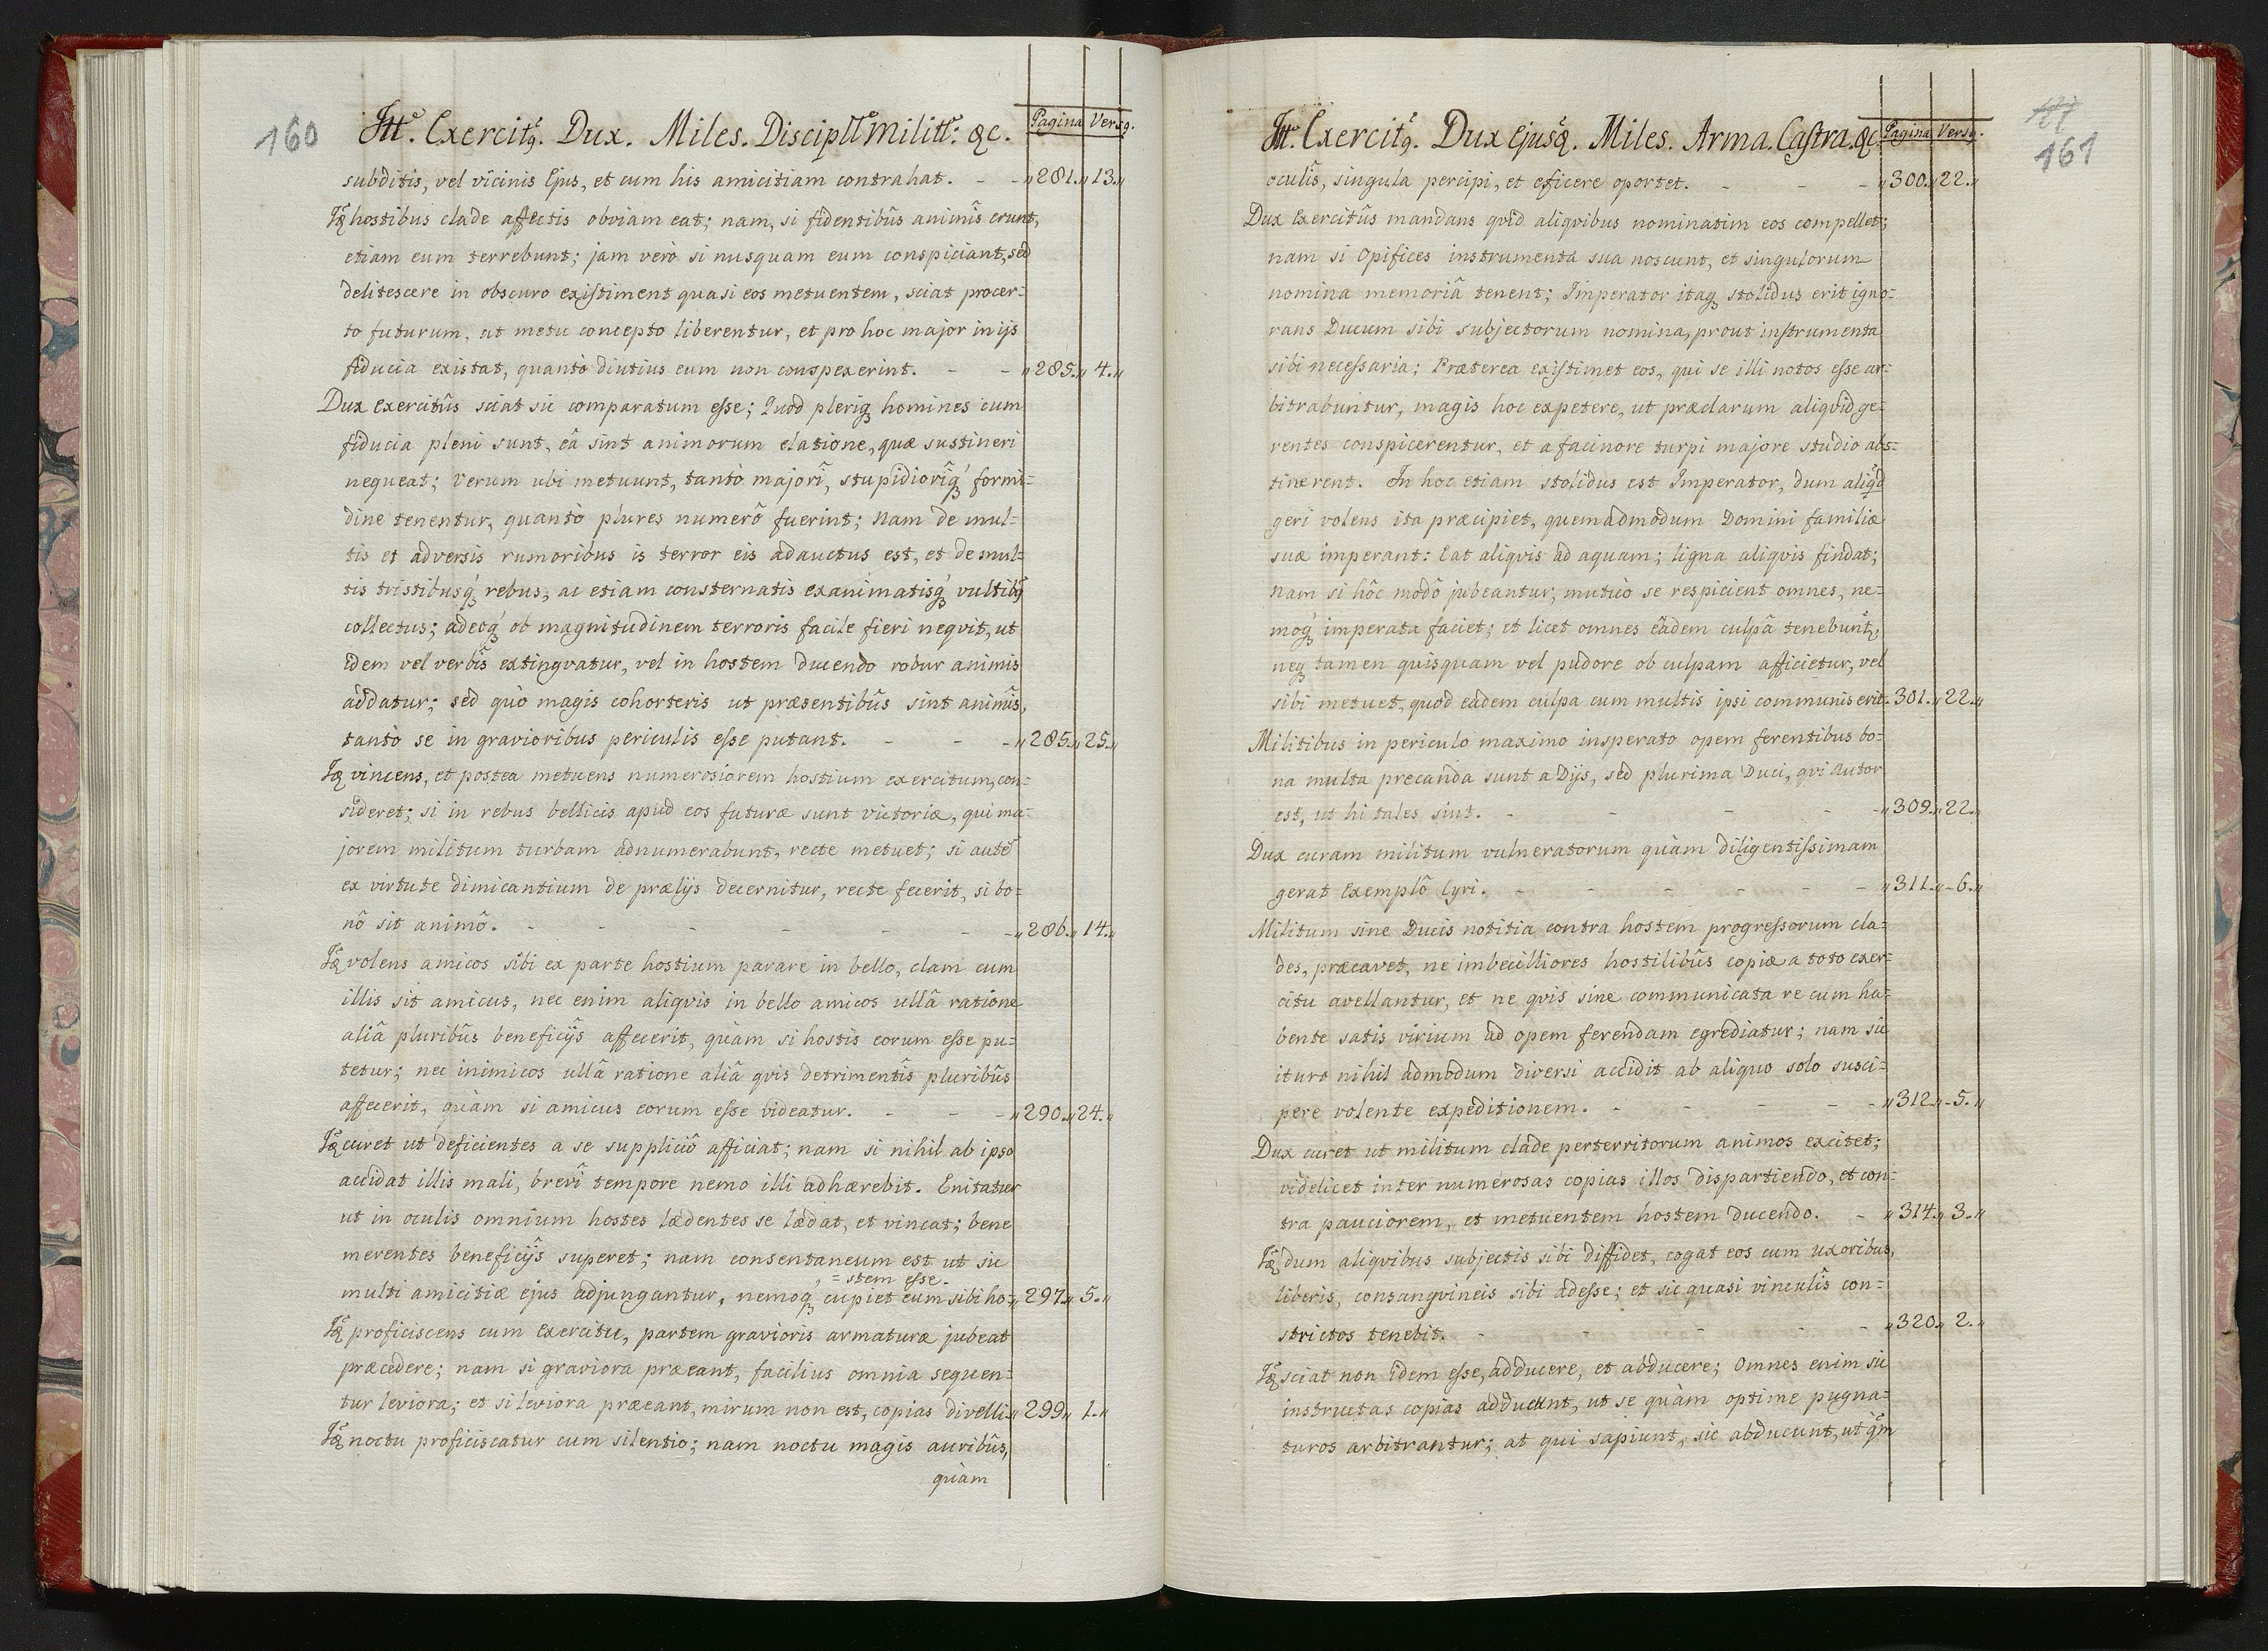 160
Itt. Exercitq. Dux. Miles. Discipll militt: &c.
Pagina Versq.
subditis, vel vicinis Ejus, et cum his amicitiam contrahat. - - „281.„ 13.„
Iq hostibus clade affectis obviam eat; nam, si fidentibûs animîs erunt,
etiam eum terrebunt; jam verò si nusquam eum conspiciant, sed
delitescere in obscuro existiment quasi eos metuentem, sciat procer-
to futurum, ut metu concepto liberentur, et pro hoc major in ijs
fiducia existat, quantò diutius eum non conspexerint. - - „285.„ 4.„
Dux Exercitûs sciat sic comparatum esse; Quod pleriq homines cum
fiducia pleni sunt, eâ sint animorum elatione, quæ sustineri
nequeat; Verum ubi metuunt, tantò majorî, stupidiorîq formi=
dine tenentur, quantò plures numerô fuerint; Nam de mul=
tis et adversis rumoribus is terror eis adauctus est, et de mul=
tis tristibusq rebus, ac etiam consternatis exanimatisq vultibq
collectus; adeoq ob magnitudinem terroris facile fieri neqvit, ut
idem vel verbîs extingvatur, vel in hostem ducendo robur animis
addatur; sed quò magis cohorteris ut præsentibûs sint animîs,
tantò se in gravioribus periculis esse putant. - - - „285.„ 25.„
Iq vincens, et postea metuens numerosiorem hostium exercitum, con=
sideret; si in rebus bellicis apud eos futuræ sunt victoriæ, qui ma=
jorem militum turbam adnumerabunt, recte metuet; si autē
ex virtute dimicantium de prælijs decernitur, recte fecerit, si bo=
nô sit animô. - - - - - - - „286.„ 14.„
Iq volens amicos sibi ex parte hostium parare in bello, clam cum
illis sit amicus, nec enim aliqvis in bello amicos ullâ ratione
aliâ pluribûs beneficijs affecerit, quàm si hostis eorum esse pu=
tetur; nec inimicos ullâ ratione aliâ qvis detrimentîs pluribûs
affecerit, quàm si amicus eorum esse videatur. - - - „290.„ 24.„
Iq curet ut deficientes a se suppliciô afficiat; nam si nihil ab ipso
accidat illis mali, brevî tempore nemo illi adhærebit. Enitatur
ut in oculis omnium hostes lædentes se lædat, et vincat; bene
merentes beneficijs superet; nam consentaneum est ut sic
= stem esse.
multi amicitiæ ejus adjungantur, nemoq cupiet eum sibi ho= „297.„ 5.„
Iq proficiscens cum Exercitu, partem gravioris armaturæ jubeat
præcedere; nam si graviora præeant, facilius omnia sequen=
tur leviora; et si leviora præeant, mirum non est, copias divelli. „299.„ 1.„
Iq noctu proficiscatur cum silentio; nam noctu magis auribûs,
quàm
161
Itt. Exercitq. Dux Ejusq. Miles. Arma. Castra. &c.
Pagina Versq.
oculîs, singula percipi, et eficere oportet. - - - „300.„ 22.„
Dux Exercitûs mandans qvid aliqvibus nominatim eos compellet;
nam si Opifices instrumenta sua noscunt, et singulorum
nomina memoriâ tenent; Imperator itaq stolidus erit igno=
rans Ducum sibi subjectorum nomina, prout instrumenta
sibi necessaria; Præterea existimet eos, qui se illi notos esse ar=
bitrabuntur, magis hoc expetere, ut præclarum aliqvid ge=
rentes conspicerentur, et a facinore turpi majore studio abs=
tinerent. In hoc etiam stolidus est Imperator, dum aliqd
geri volens ita præcipiet, quemadmodum Domini familiæ
suæ imperant: Eat aliqvis ad aquam; ligna aliqvis findat;
nam si hôc modô jubeantur, mutuò se respicient omnes, ne=
moq imperata faciet; et licet omnes eâdem culpâ tenebunt,
neq tamen quisquam vel pudore ob culpam afficietur, vel
sibi metuet, quod eadem culpa cum multis ipsi communis erit. 301.„ 22.„
Militibus in periculo maximo insperato opem ferentibus bo=
na multa precanda sunt a Dijs, sed plurima Duci, qvi autor
est, ut hi tales sint. - - - - „309.„ 22.„
Dux curam militum vulneratorum quàm diligentissimam
gerat Exemplô Cyri. - - - - - - „311.„ 6.„
Militum sine Ducis notitia contra hostem progressorum cla=
des, præcavet, ne imbecilliores hostilibûs copiæ a toto exer=
citu avellantur, et ne qvis sine communicata re cum ha=
bente satis virium ad opem ferendam egrediatur; nam sic
ituro nihil admodum diversi accidit ab aliquo solo susci=
pere volente expeditionem. - - - - - „312.„ 5.„
Dux curet ut militum clade perterritorum animos excitet;
videlicet inter numerosas copias illos dispartiendo, et con=
tra pauciorem, et metuentem hostem ducendo. - „314.„ 3.„
Iq dum aliqvibus subjectis sibi diffidet, cogat eos cum uxoribus,
liberis, consangvineis sibi adesse; et sic quasi vinculîs con=
strictos tenebit. - - - - - „320.„ 2.„
Iq sciat non idem esse, adducere, et abducere; Omnes enim sic
instructas copias adducunt, ut se quàm optime pugna=
turos arbitrantur; at qui sapiunt, sic abducunt, ut qm